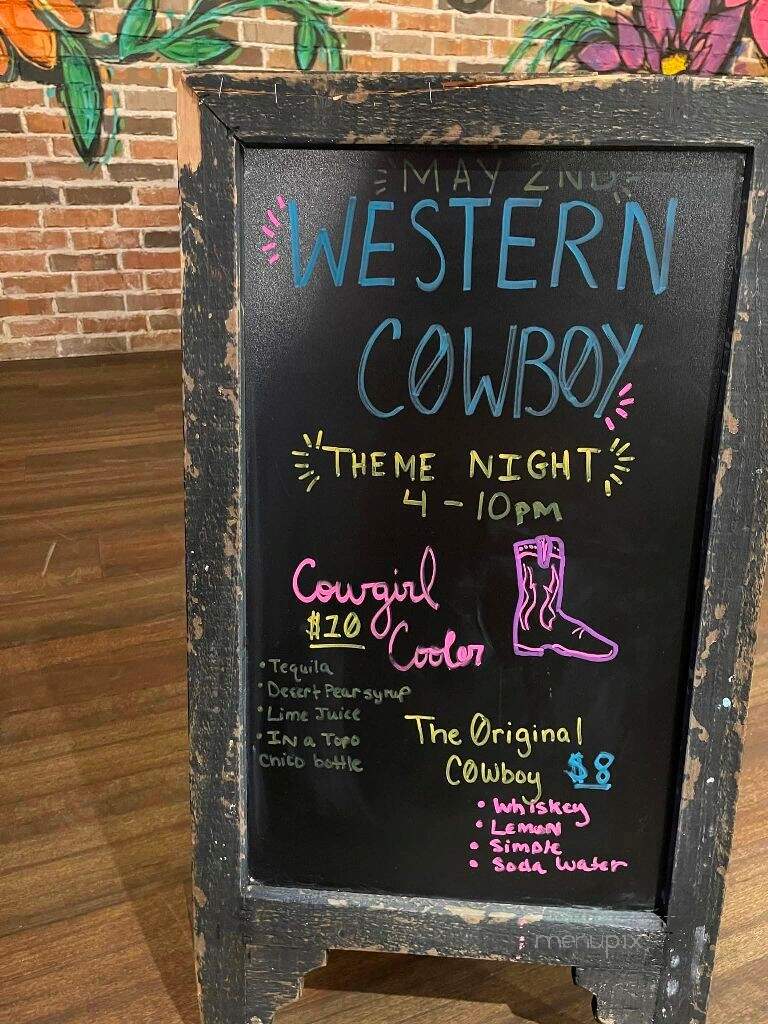 MAY 2ND
WESTERN
COWBOY
THEME NIGHT
4 - 10pm
Cowgirl
$10
Cooler
• Tequila
• Desert Pear syrup
• Lime Juice
• IN a Topo
Chico bottle
The Original
COWboy $8
• Whiskey
• LEMON
• Simple
• Soda Water
menupix